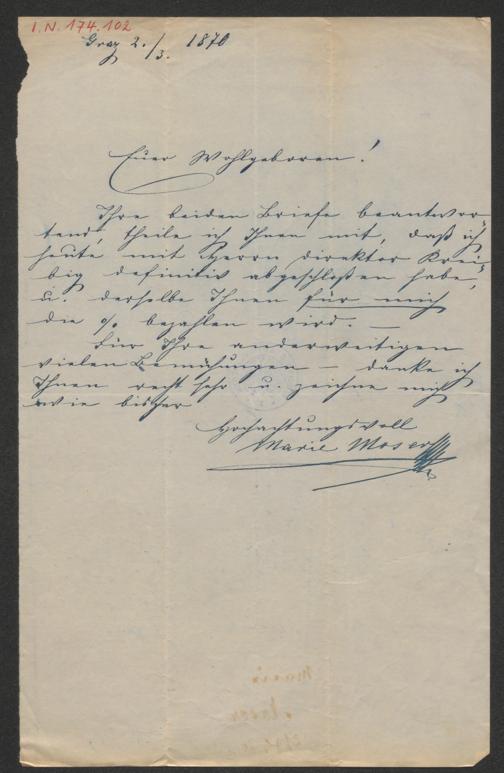 I. N. 174.102
Graz 2./3. 1870
Euer Wohlgeboren!
Ihre beiden Briefe beantwor-
tend, theile ich Ihnen mit, daß ich
heute mit Herrn Direktor Krei-
big definitiv abgeschloßen habe,
u. derselbe Ihnen für mich
die % bezahlen wird. —
Für Ihre anderweitigen
vielen Bemühungen – danke ich
Ihnen recht sehr u. zeichne mich
wie bisher
Hochachtungsvoll
Marie Moser